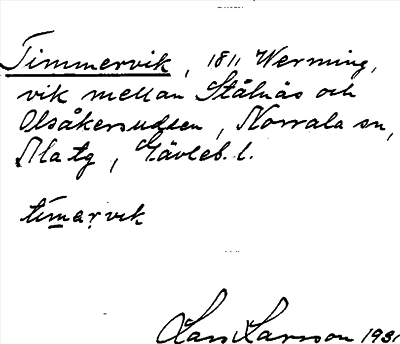 Timmervik, 1811 Werming,
vik mellan Stålnäs och
Olsåkersudden, Norrala sn,
Ala tg, Gävleb. l.
timarvik
Lars Larsson 1931